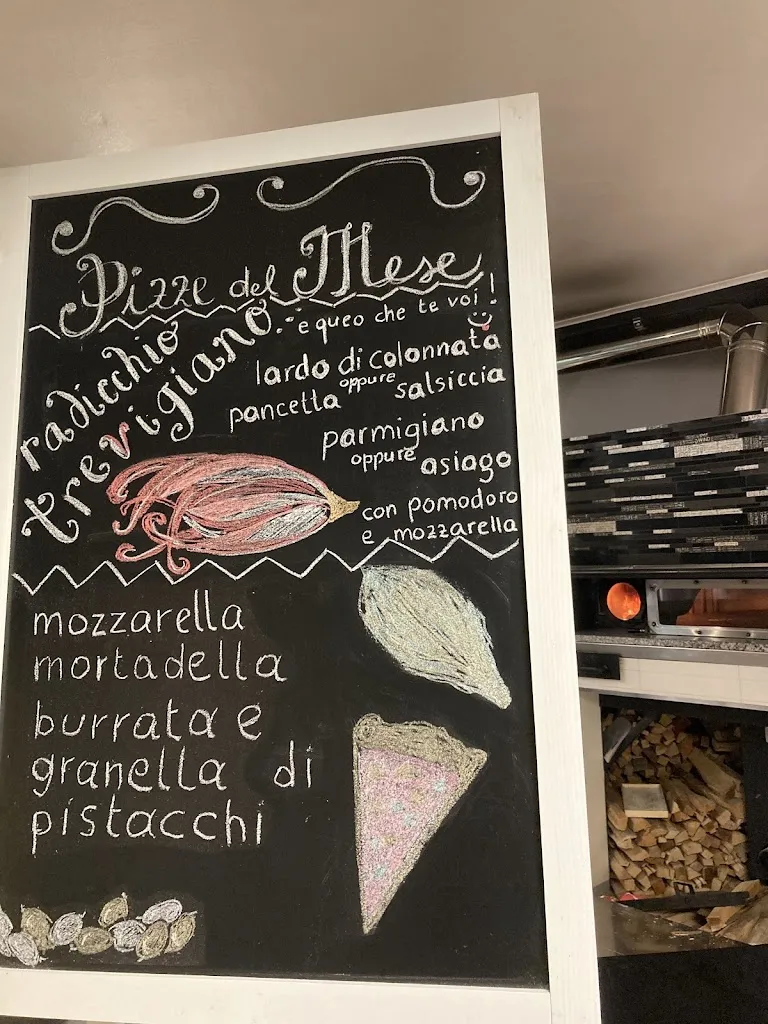 Pizze del Mese
radicchio
trevigiano...
e queo che te voi!
lardo di colonnata
oppure
pancetta salsiccia
parmigiano
oppure asiago
con pomodoro
e mozzarella
mozzarella
mortadella
burrata e
granella di
pistacchi